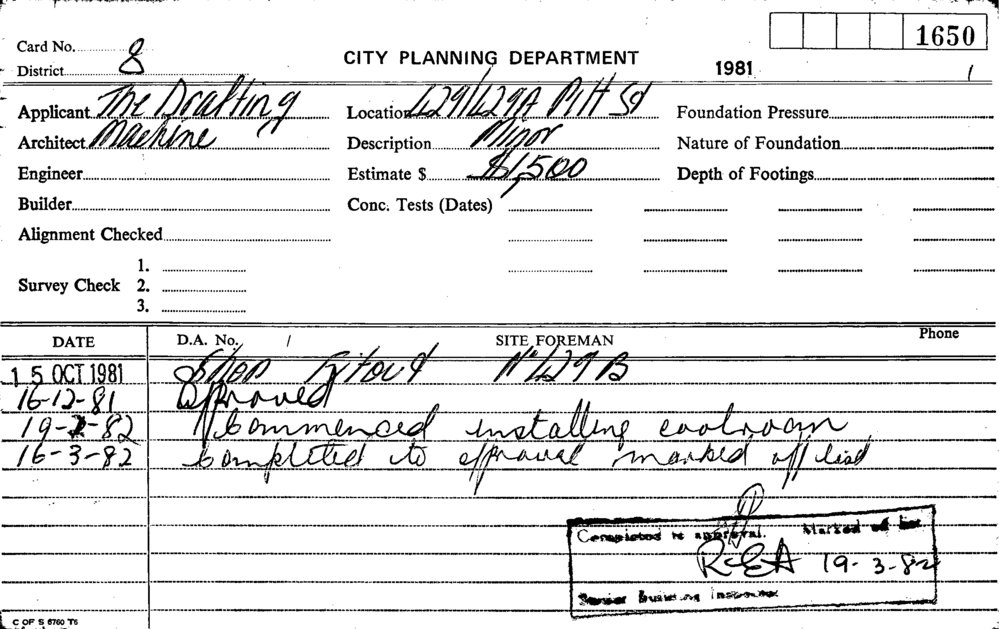 1650
Card No.
District 8
CITY PLANNING DEPARTMENT
1981
Applicant The Drafting
Location 429/429A Pitt St
Foundation Pressure
Architect Machine
Description Minor
Nature of Foundation
Engineer
Estimate $ $1,500
Depth of Footings
Builder
Conc. Tests (Dates)
Alignment Checked
Survey Check
1.
2.
3.
DATE D.A. No. / SITE FOREMAN Phone
15 OCT 1981 Shop Fitout No 429B
16-12-81 Approved
19-2-82 Commenced installing coolroom
16-3-82 Completed to approval marked off list
Completed to approval. Marked off list
19-3-82
Senior Building Inspector
C OF S 6760 T6